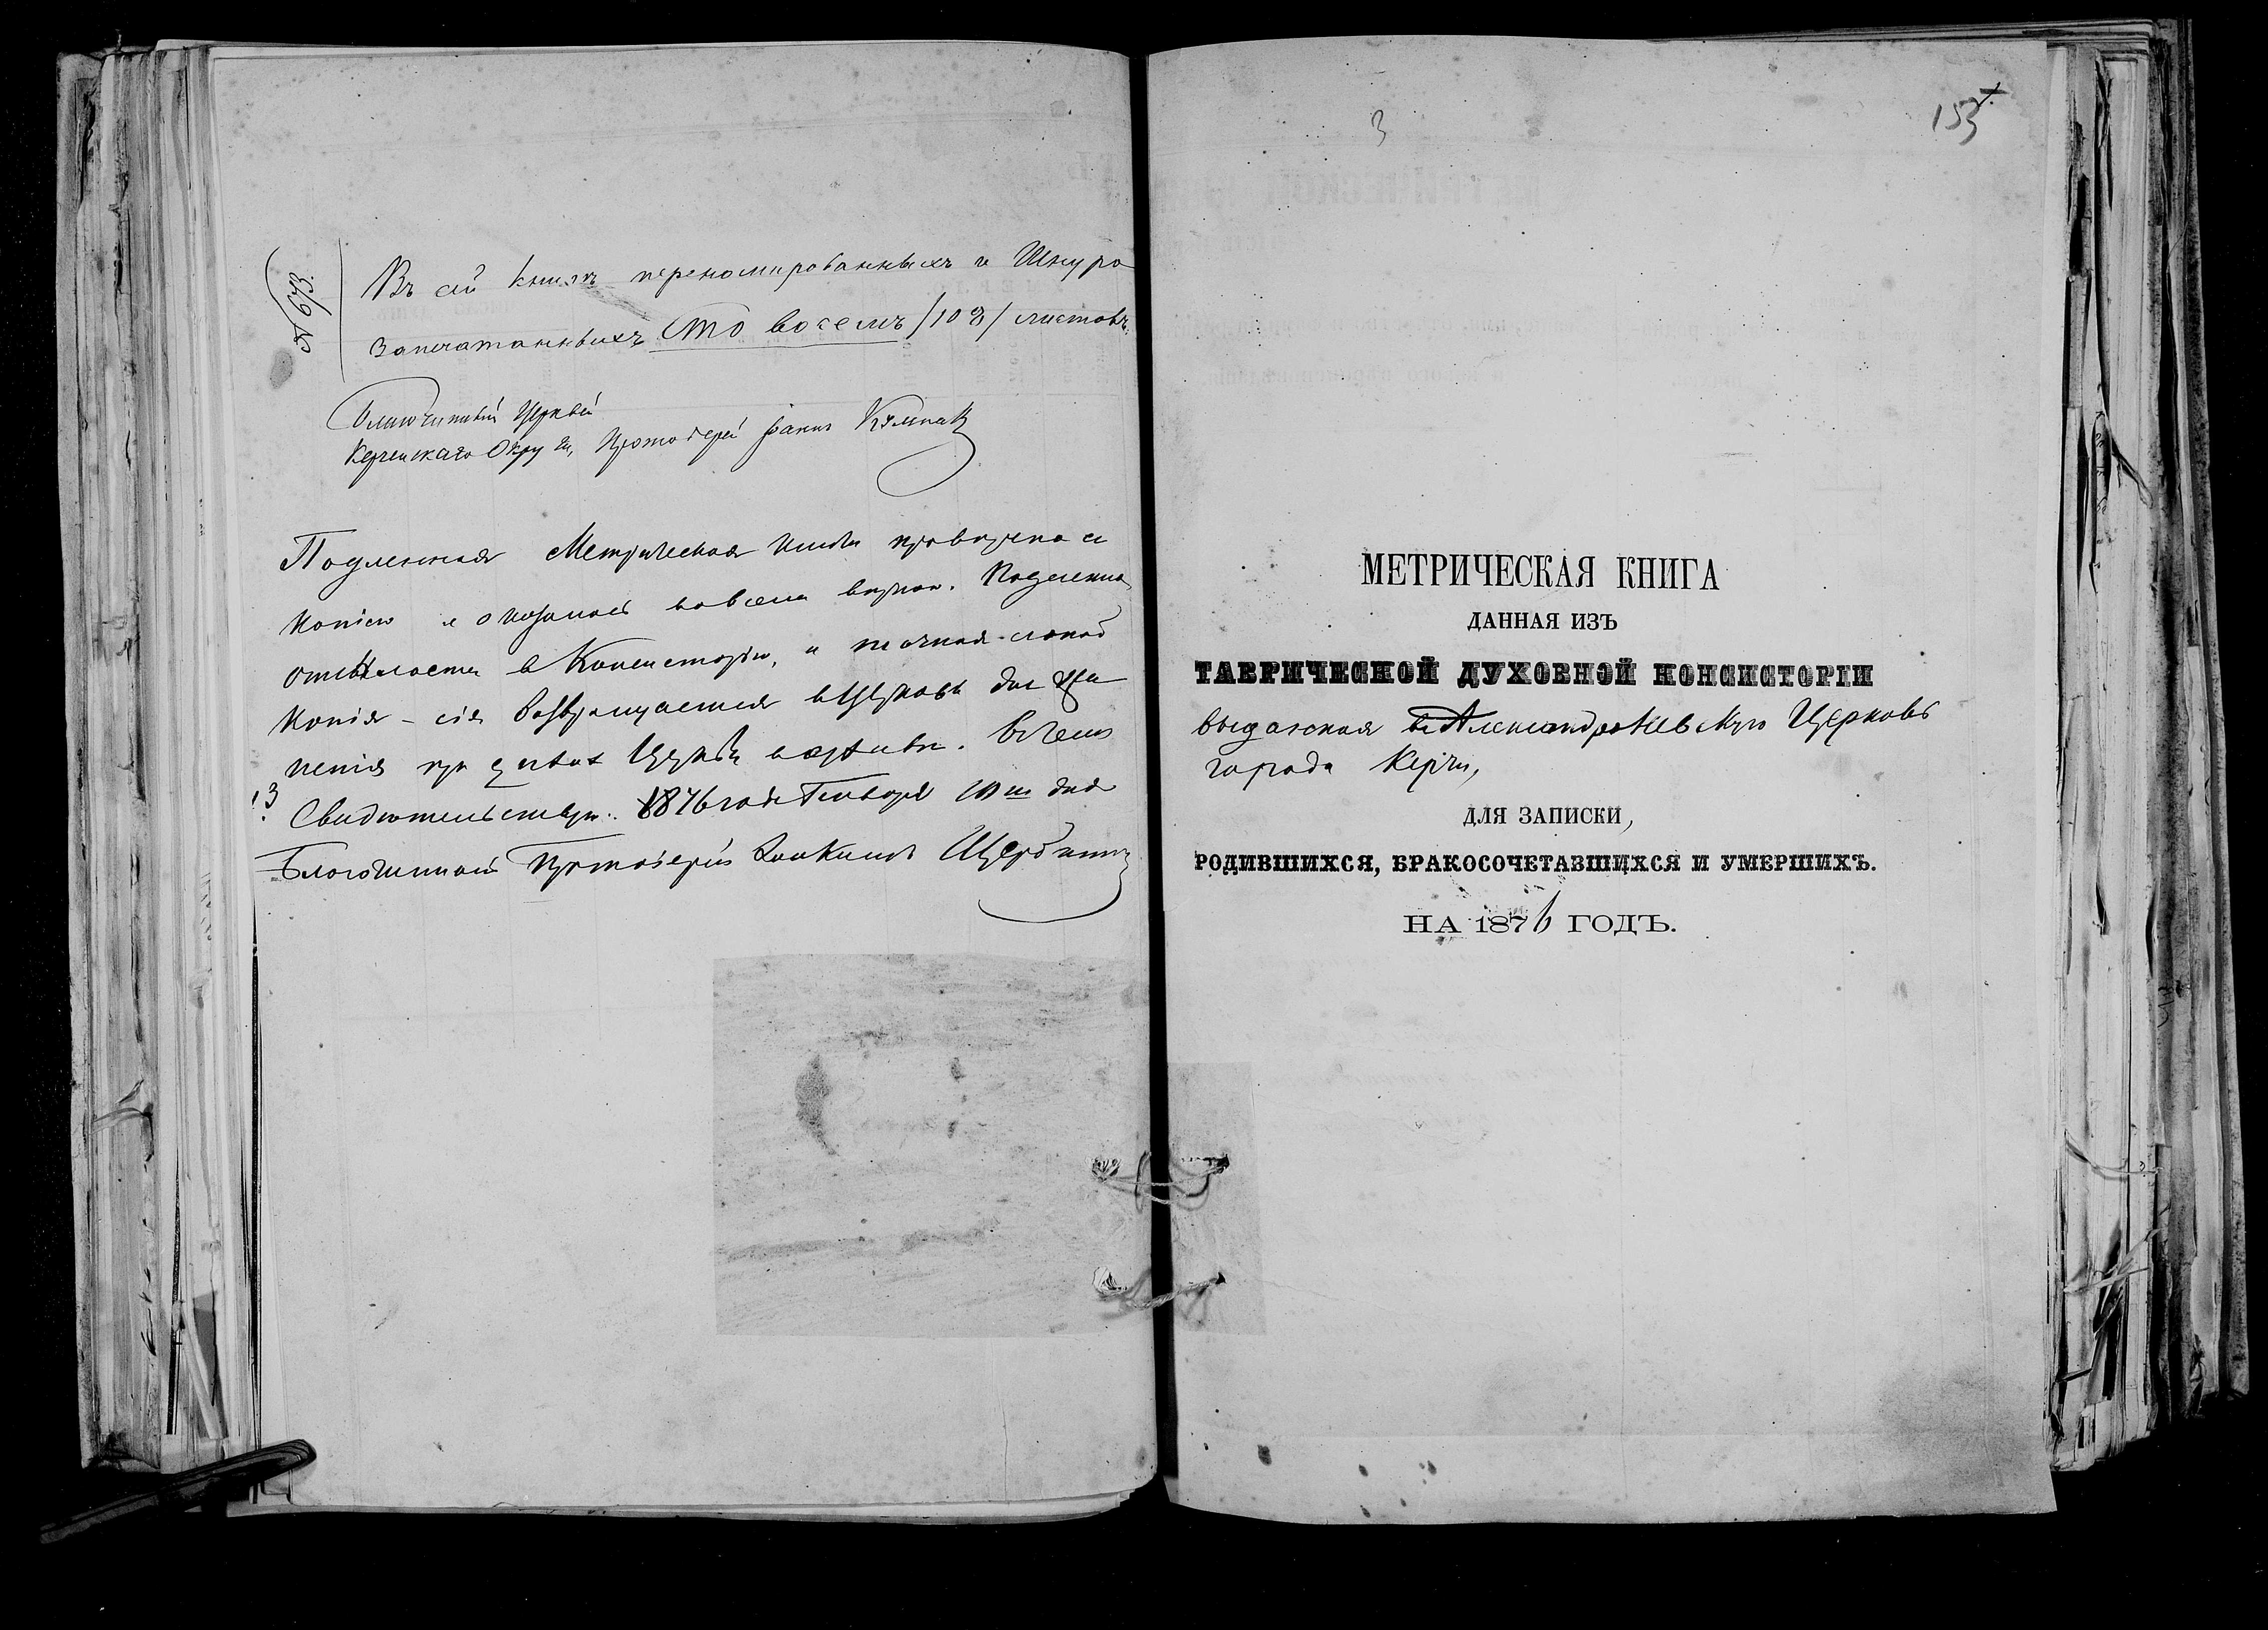 № 673.
Въ сей книгѣ переномированныхъ и Шнуро
запечатанныхъ Сто восемъ /108/ листовъ.
Благочинный Церквей
Керченскаго Округа, Протоіерей Іоаннъ
Подленная Метрическая книга проверена съ
копіею и оказалась во всемъ верною. Подленная
отсылается в Консисторію, а точная с оной
копія – сія возвращается в Церковь для хра
ненія при делах Церкви в архиве. В чем
Свидетельствую. 1876 года Генваря 10 го дня
13
Благочинный Протоіерей Щербина
3
153
МЕТРИЧЕСКАЯ КНИГА
ДАННАЯ ИЗЪ
ТАВРИЧЕСКОЙ ДУХОВНОЙ КОНСИСТОРІИ
выданная въ АлександроНевскую Церковь
города Керчи,
ДЛЯ ЗАПИСКИ,
РОДИВШИХСЯ, БРАКОСОЧЕТАВШИХСЯ И УМЕРШИХЪ.
НА 1876 ГОДЪ.